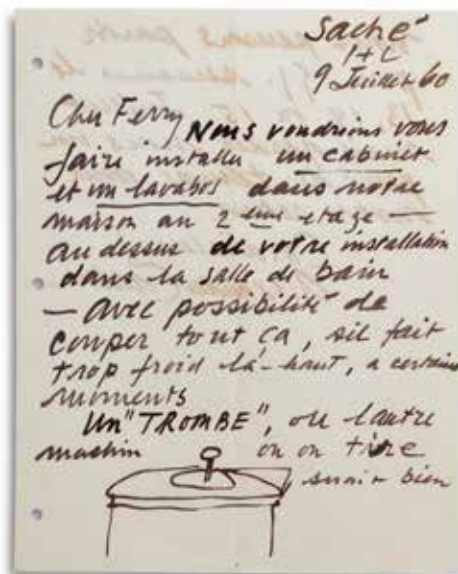 Saché
I+L
9 Juillet 60
Cher Ferry Nous voudrions vous
faire installer un cabinet
et un lavabos dans notre
maison au 2 eme etage —
au dessus de votre installation
dans la salle de bain
— avec possibilité de
couper tout ça, sil fait
trop froid là-haut, a certains
moments
Un "TROMBE", ou lautre
machin ou on tire
serait bien